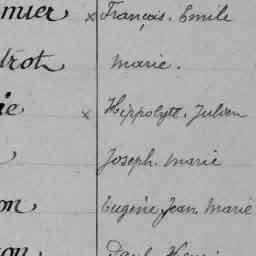 mier x François. Emile
trot Marie.
ie x Hippolyte. Julien
Joseph. Marie
on, Eugène, Jean Marie
Paul Henri